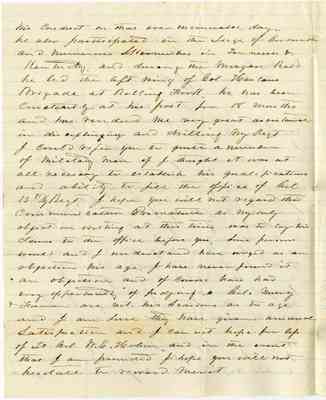 his conduct on that ever memorable day,
he also participated in the Siege of Corinth
and numerous Skirmishes in Tennessee &
Kentucky, and during the Morgan Raid
he led the left wing of Col Harlans
Brigade at Rolling Fork he has been
Constantly at his post for 18 months
and has rendered me very great assistance
in disciplining and drilling my Regt
I could refer you to quite a number
of Military men if I thought it was at
all necessary to establish his qualifications
and ability to fill the office of Col
13 Ky Regt. I hope you will not regard this
Communication Premature as my only
object in writing at this time was to lay his
Claims to the office before you, Some persons
would and I understand have urged as an
objection his age, I have never found it
an objection and of course have had
every opportunity of
are not his Seniors as to age
and I am sure they have given universal
Satisfaction and I can not hope for less
of Lt Col W. E. Hobson and in the event
that I am promoted I hope you will not
hesitate to reward Merit